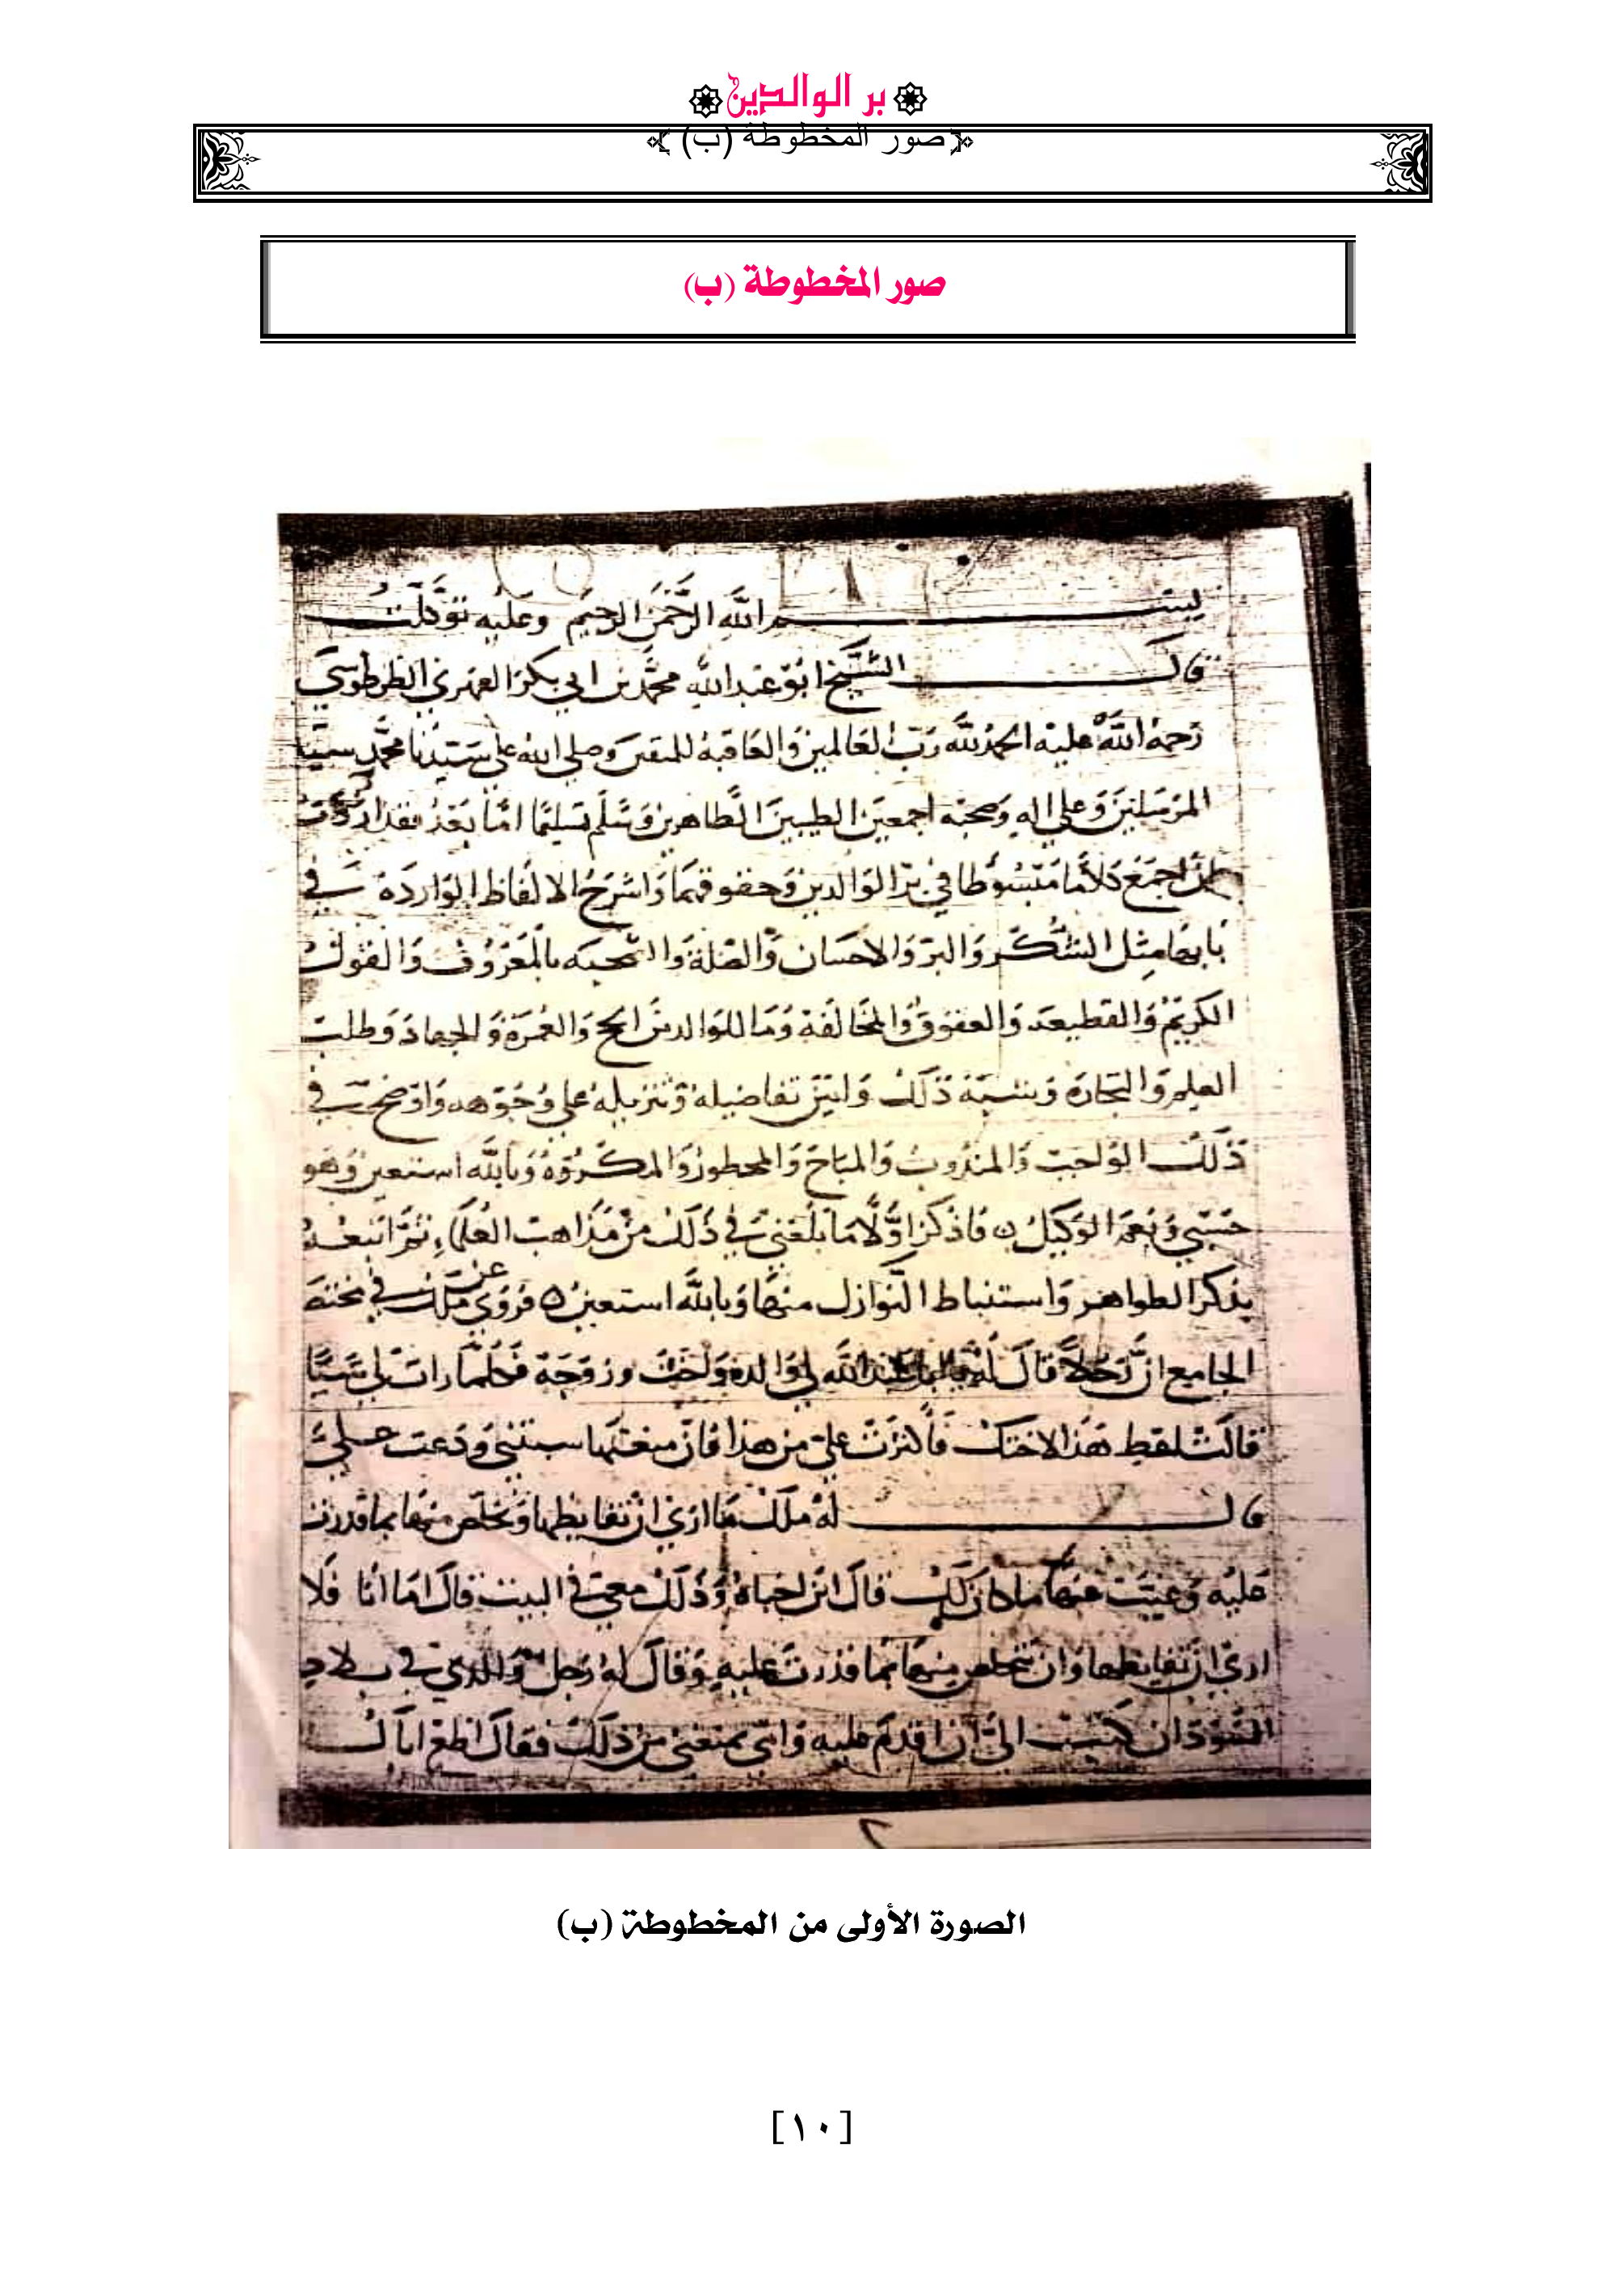 بر الوالدين
صور المخطوطة (ب)
صور المخطوطة (ب)
بسم الله الرحمن الرحيم وعليه توكلت
قال الشيخ ابو عبد الله محمد بن ابي بكر الفهري الطرطوسي
رحمة الله عليه الحمد لله رب العالمين والعاقبة للمتقين وصلى الله على سيدنا محمد سيد
المرسلين وعلى اله وصحبه اجمعين الطيبين الطاهرين وسلم تسليما اما بعد فقد اردت
ان اجمع كلاما مبسوطا في بر الوالدين وحقوقهما واشرح الالفاظ الواردة في
بابهما مثل الشكر والبر والاحسان والصلة والصحبه بالمعروف والقول
الكريم والقطيعه والعقوق والمخالفة وما للوالدين الحج والعمرة والجهاد وطلب
العلم والتجارة ذلك وابين تفاصيله وتنزيله على وجوهه واوضحت في
ذلك الواجب والمندوب والمباح والمحظور والمكروه وبالله استعين وهو
حسبي ونعم الوكيل ه فاذكر اولا ما بلغني في ذلك من مذاهب العلماء ثم اتبعه
بذكر الظواهر واستنباط النوازل منها وبالله استعين ه فروي عن ملك في مختصر
الجامع ان رجلا قال له يابا عبد الله لي والدة واخت وزوجة فكلما رات لي شيا
قالت اعط هذا لاختك فاكثرت علي من هذا فان منعتها سبتني ودعت علي
قال له ملك ما ارى ان تغايظها وتخلص منها بما قدرت
عليه وغيبت عنها ما كان لك قال اين اخباه وذلك معي في البيت قال اما انا فلا
ارى ان تغايظها وان تتخلص منها بما قدرت عليه وقال له رجل والدي في بلاد
السودان كتب الي ان اقدم عليه وامي تمنعني من ذلك فقال اطع اباك
٢
الصورة الأولى من المخطوطة (ب)
[١٠]